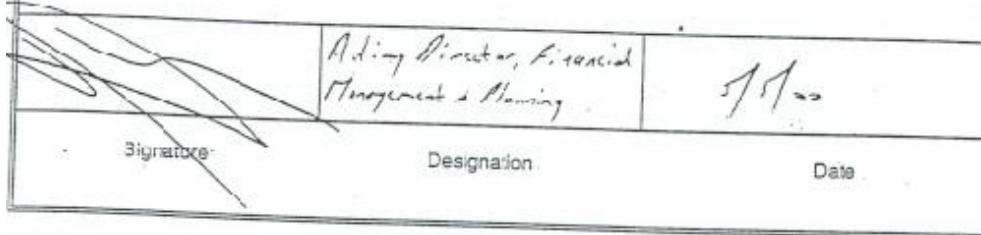 Acting Director, Financial
Management & Planning
5/5/00
Signature
Designation
Date